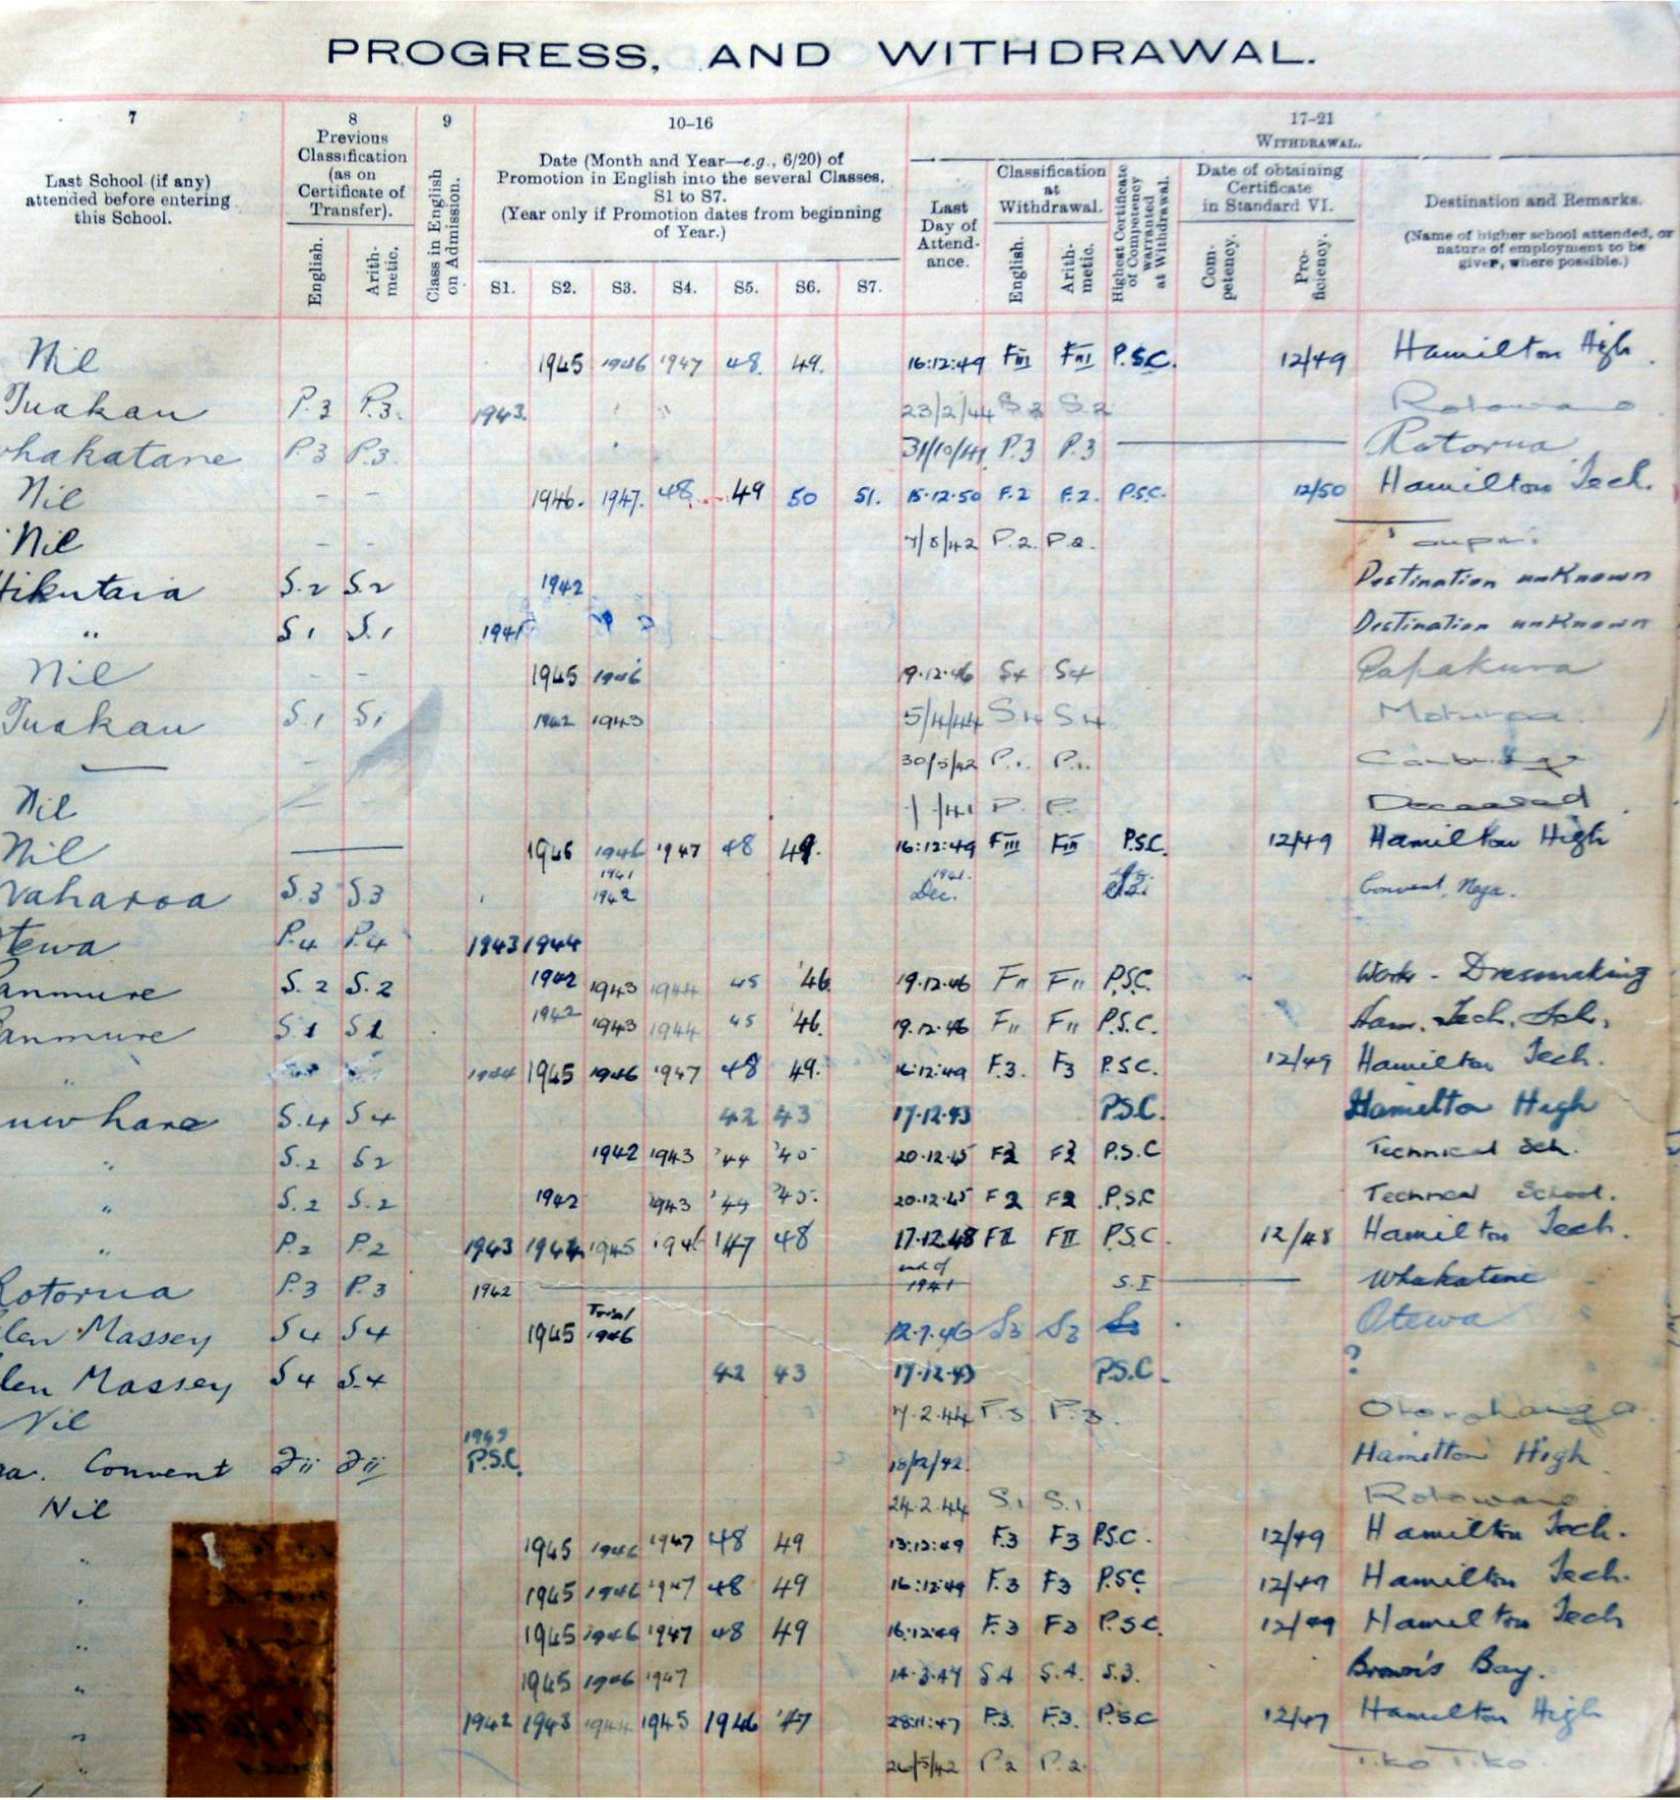 PROGRESS, AND WITHDRAWAL.
7 8 9 10–16 17–21
Last School (if any) attended before entering this School.
Previous Classification (as on Certificate of Transfer).
English. Arithmetic.
Class in English on Admission.
Date (Month and Year—e.g., 6/20) of Promotion in English into the several Classes, S1 to S7.
(Year only if Promotion dates from beginning of Year.)
S1. S2. S3. S4. S5. S6. S7.
WITHDRAWAL.
Last Day of Attendance.
Classification at Withdrawal.
English. Arithmetic.
Highest Certificate of Competency warranted at Withdrawal.
Date of obtaining Certificate in Standard VI.
Competency. Proficiency.
Destination and Remarks.
(Name of higher school attended, or nature of employment to be given, where possible.)
Nil 1945 1946 1947 48. 49. 16:12:49 FIII FIII P.S.C. 12/49 Hamilton High
Tuakau P.3 P.3. 1943. 23/2/44 S.2 S.2 Rotowaro
Whakatane P.3 P.3. 31/10/41 P.3 P.3 Rotorua
Nil – – 1946. 1947. 48 49 50 51. 15.12.50 F.2 F.2. P.S.C. 12/50 Hamilton Tech.
Nil – – 7/8/42 P.2. P.2. Taupiri
Hikutaia S.2 S.2 1942 Destination unknown
" S1 S.1 1941 Destination unknown
Nil – – 1945 1946 19.12.46 S4 S4 Papakura
Tuakau S.1 S1 1942 1943 5/4/44 S4 S4
30/5/42 P.1. P.1. Cambridge
Nil – – /41 P. P. Deceased
Nil 1945 1946 1947 48 49. 16:12:49 FIII FIII P.S.C. 12/49 Hamilton High
waharoa S.3 S.3 1941 1942 Dec. 1941. Convent, Nga.
tewa P.4 P.4 1943 1944
anmure S.2 S.2 1942 1943 1944 45 '46. 19.12.46 F11 F11 P.S.C. Work - Dressmaking
anmure S1 S1 1942 1943 1944 45 '46. 19.12.46 F11 F11 P.S.C. Ham. Tech. Sch.
" 1944 1945 1946 1947 48 49. 16:12:49 F.3. F3 P.S.C. 12/49 Hamilton Tech.
S.4 S4 42 43 17.12.43 P.S.C. Hamilton High
" S.2 S2 1942 1943 '44 '45 20.12.45 F2 F2 P.S.C Technical Sch.
" S.2 S.2 1942 1943 '44 '45. 20.12.45 F2 F2 P.S.C Technical School.
" P.2 P.2 1943 1944 1945 1946 '47 48 17.12.48 FII FII P.S.C. 12/48 Hamilton Tech.
Rotorua P.3 P.3 1942 end of 1941 S.I Whakatane
len Massey S4 S4 1945 Trial 1946 12.7.46 S3 S3 S3 Otewa
len Massey S4 S.4 42 43 17.12.43 P.S.C. ?
Nil 7.2.44 P.3 P.3. Otorohanga
a. Convent Fii Fii 1943 P.S.C. 18/12/42. Hamilton High
Nil 24.2.44 S.1 S.1 Rotowaro
" 1945 1946 1947 48 49 13:12:49 F.3 F3 P.S.C. 12/49 Hamilton Tech.
" 1945 1946 1947 48 49 16:12:49 F.3 F3 P.S.C 12/49 Hamilton Tech.
" 1945 1946 1947 48 49 16:12:49 F.3 F3 P.S.C. 12/49 Hamilton Tech
" 1945 1946 1947 14.3.47 S4 S.4. S.3. Brown's Bay.
" 1942 1943 1944 1945 1946 '47 28:11:47 F.3. F.3. P.S.C 12/47 Hamilton High
" 26/5/42 P2 P.2. Tiko Tiko